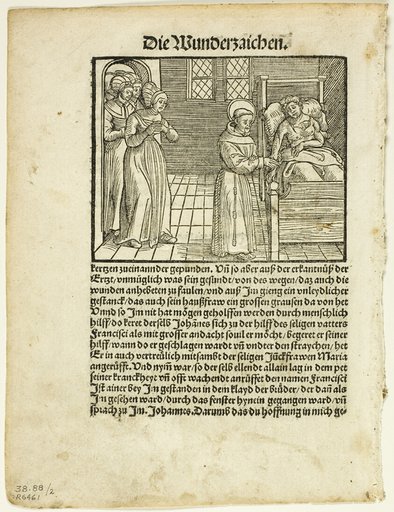 Die Wunderzaichen.
kertzen zueinannder gepunden. Vñ so aber auß der erkantnüß der
Ertzt/vnmüglich was sein gesundt/von des wegen/daz auch die
wunden anhebeten zu faulen/vnd auß Jm gieng ein vnleydlicher
gestanck/das auch sein haußfraw ein grossen grausen da von het
Vnnd so Jm nit hat mögen geholffen werden durch menschlich
hilff/do keret derselb Johānes sich zu der hilff des seligen vatters
Francisci als mit grosser andacht souil er möcht/begeret er seiner
hilff/wann do er geschlagen wardt vñ vndter den straychen/het
Er in auch vertreülich mitsambt der seligen Jückfrawen Maria
angerüfft. Vnd nyīn war/so der selb ellende allain lag in dem pet
seiner kranckheyt vñ offt wachendt anrüffet den namen Francisci
Jst ainer bey Jm gestanden in dem klayd der brüder/der dañ als
Jm gesehen ward/durch das fenster hynein gegangen ward/vñ
sprach zu Jm. Johannes. Darumb das du hoffnung in mich ge-
38.88/2
R6461